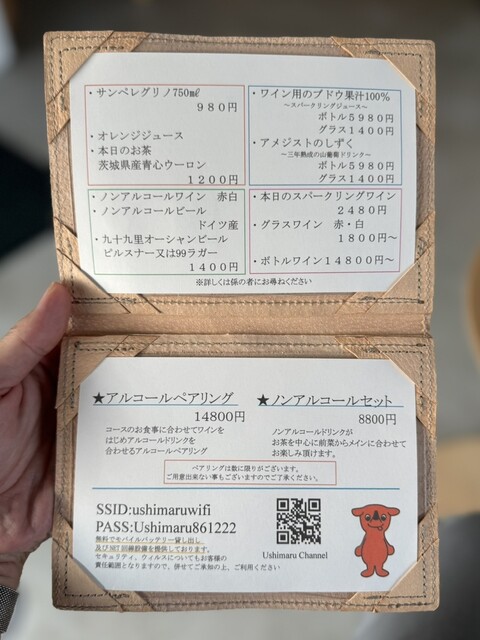 ・サンペレグリノ750㎖
980円
・オレンジジュース
・本日のお茶
茨城県産青心ウーロン
1200円
・ワイン用のブドウ果汁100%
～スパークリングジュース～
ボトル5980円
グラス1400円
・アメジストのしずく
～三年熟成の山葡萄ドリンク～
ボトル5980円
グラス1400円
・ノンアルコールワイン 赤白
・ノンアルコールビール
ドイツ産
・九十九里オーシャンビール
ピルスナー又は99ラガー
1400円
・本日のスパークリングワイン
2480円
・グラスワイン 赤・白
1800円～
・ボトルワイン14800円～
※詳しくは係の者にお尋ねください
★アルコールペアリング
14800円
コースのお食事に合わせてワインを
はじめアルコールドリンクを
合わせるアルコールペアリング
★ノンアルコールセット
8800円
ノンアルコールドリンクが
お茶を中心に前菜からメインに合わせて
お楽しみ頂けます。
ペアリングは数に限りがございます。
ご用意出来ない事もございますのでご了承ください。
SSID:ushimaruwifi
PASS:Ushimaru861222
無料でモバイルバッテリー貸し出し
及びNET回線設備を提供しております。
セキュリティ、ウィルスについてもお客様の
責任範囲となりますので、併せてご承知の上、ご利用ください
Ushimaru Channel